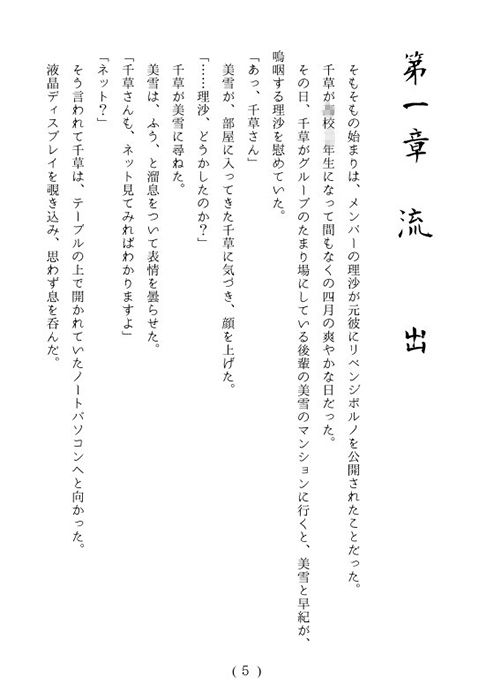 第一章 流 出
そもそもの始まりは、メンバーの理沙が元彼にリベンジポルノを公開されたことだった。
千草が校年生になって間もなくの四月の爽やかな日だった。
その日、千草がグループのたまり場にしている後輩の美雪のマンションに行くと、美雪と早紀が、
嗚咽する理沙を慰めていた。
「あっ、千草さん」
美雪が、部屋に入ってきた千草に気づき、顔を上げた。
「……理沙、どうかしたのか?」
千草が美雪に尋ねた。
美雪は、ふう、と溜息をついて表情を曇らせた。
「千草さんも、ネット見てみればわかりますよ」
「ネット?」
そう言われて千草は、テーブルの上で開かれていたノートパソコンへと向かった。
液晶ディスプレイを覗き込み、思わず息を呑んだ。
(5)